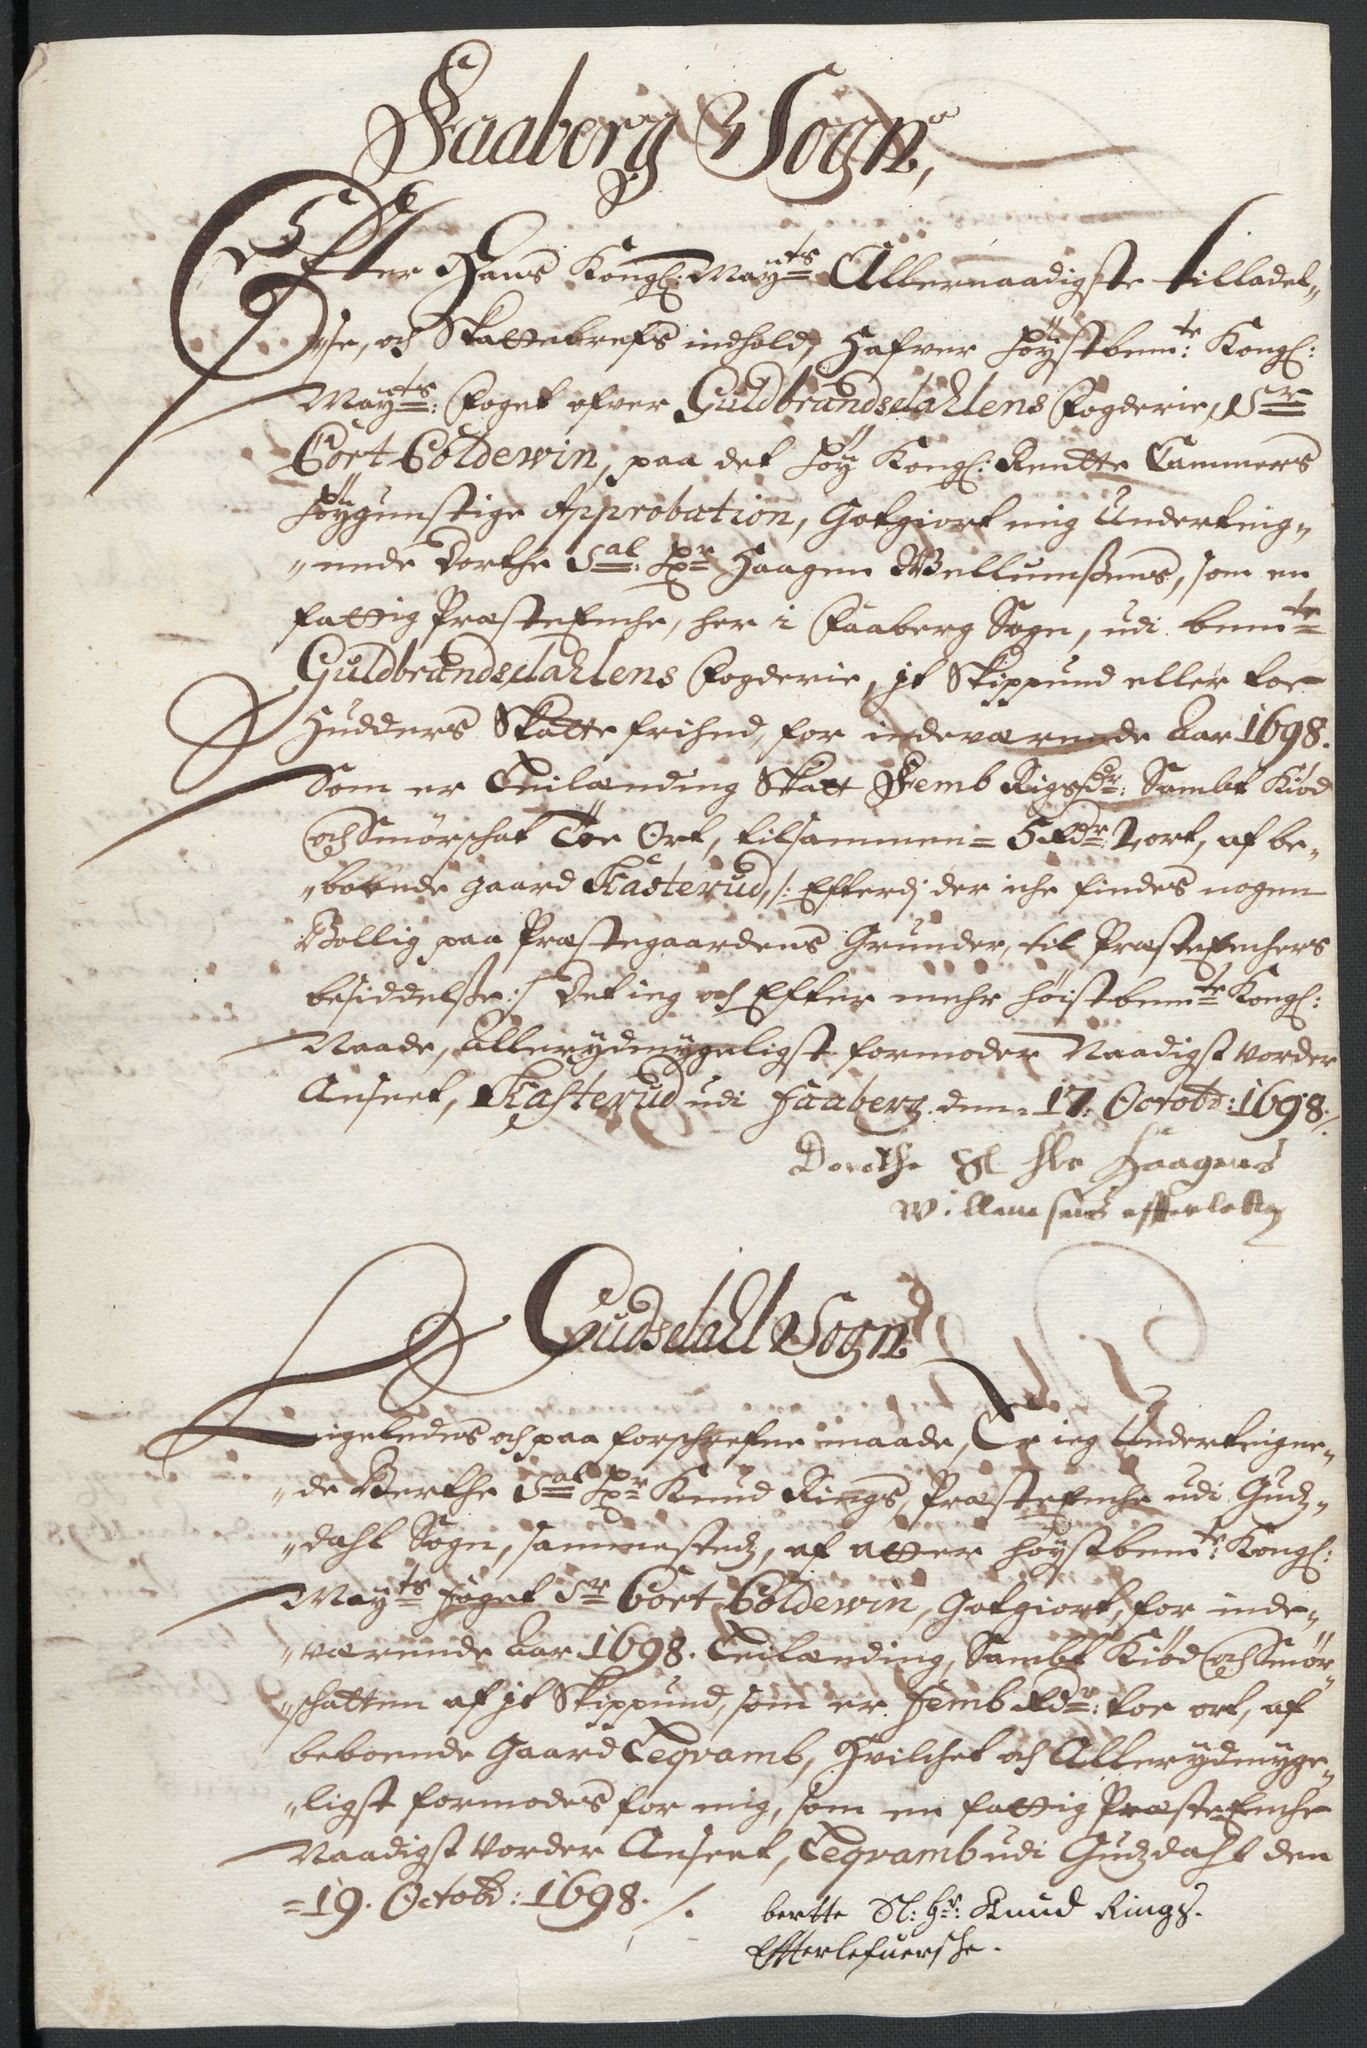 Faaberg Sogn,
Efter Hans Kongl: Mayts Allernaadigste tilladel„
„se, och Skattebrefs indhold, Hafver Høystbemte: Kongl:
Mayts: Foget ofver Guldbrandsdahlens Fogderie, Sr
Cort Coldewin, paa det høy Kongl: Rendte Cammers
Høygunstige Approbation, Gotgiort mig Underteig„
„nede Dorthe Sal: Hr Haagen Wellumsøns, som en
fattig Præste Enche, her i Faaberg Sogn, udi bemte
Guldbrandsdahlens Fogderie, jt Skippund eller toe
Hudders Skatte frihed, for indeværende Aar 1698.
Som er Leilænding Skatt Femb Rigsdr: Sambt Kiød
och Smørschat Toe Ort, tilsammen = 5 Rdr 2 ort, af be„
„boende gaard Kasterud, /: Efterdj der iche findes nogen
Bollig paa Præstegaardens Grunder, til Præste Enchers
besiddelsse :/ Det ieg och Effter mehr høistbemte Kongl:
Naade, Allerydmygeligst formoder Naadigst vorder
Anseet, Kasterud udi Faaberg den = 17. Octobr: 1698.
Dorothe Sl Hr Haagens
Willumsens efterlatte
Gudsdahl Sogn
Ligeledes och paa forschrefne maade, Er ieg Underteigne„
„de Berthe Sal Hr Knud Rings, Præste Enche udi Gudz„
„dahl Sogn, sammestedz, af atter høystbemte: Kongl:
Mayts Foget Sr Cort Coldewin, Gotgiort, for inde„
„værende Aar 1698. Leilænding, Sambt Kiød och Smør„
„schatten af jt Skippund, som er Femb Rdr: toe ort, af
beboende Gaard Teqvamb, Hvilchet och Allerydmyge„
„ligst formodes for mig, som en fattig Præste Enche
Naadigst vorder Anseet, Teqvamb udi Gudzdahl den
= 19. Octobr: 1698. /.
bertte Sl: hr: Knud Rings.
Effterlefuersche.